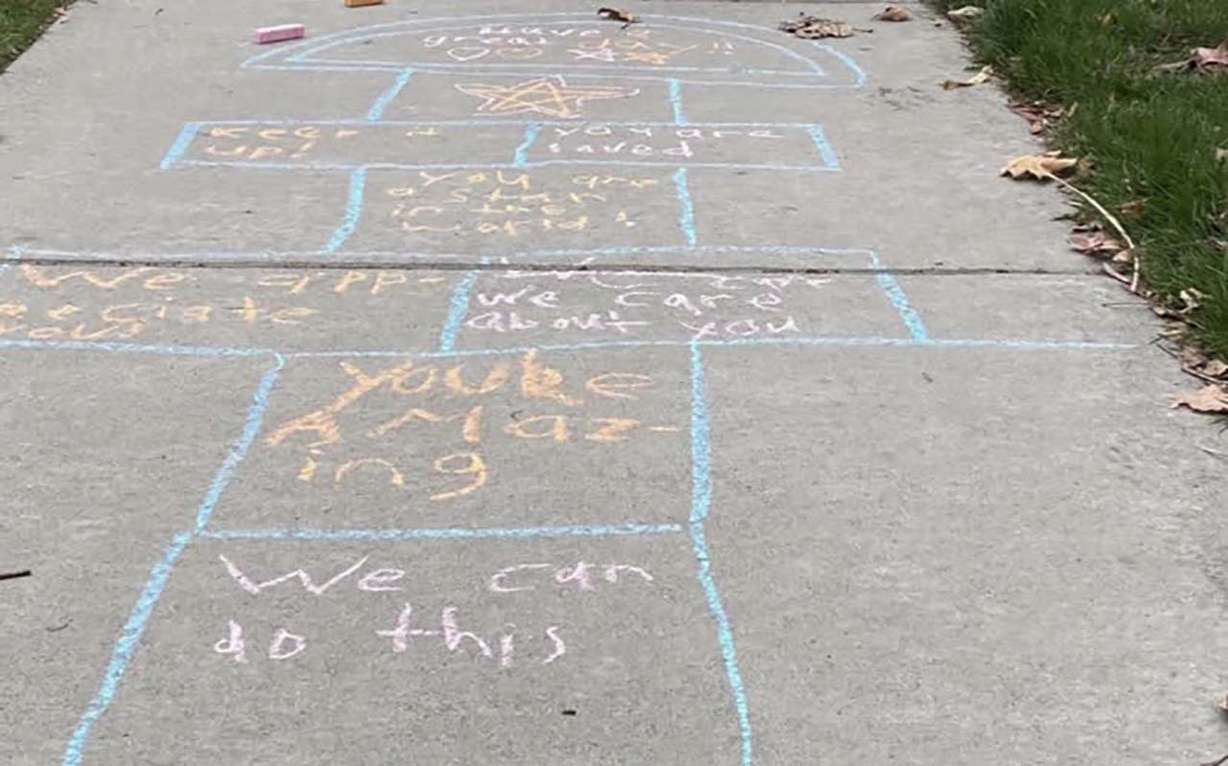 Have a
great day!!
Keep it
up!
You are
loved
You are
a star
in the
world!
We app-
reciate
you!
we care
about you
you're
Amaz-
ing
We can
do this